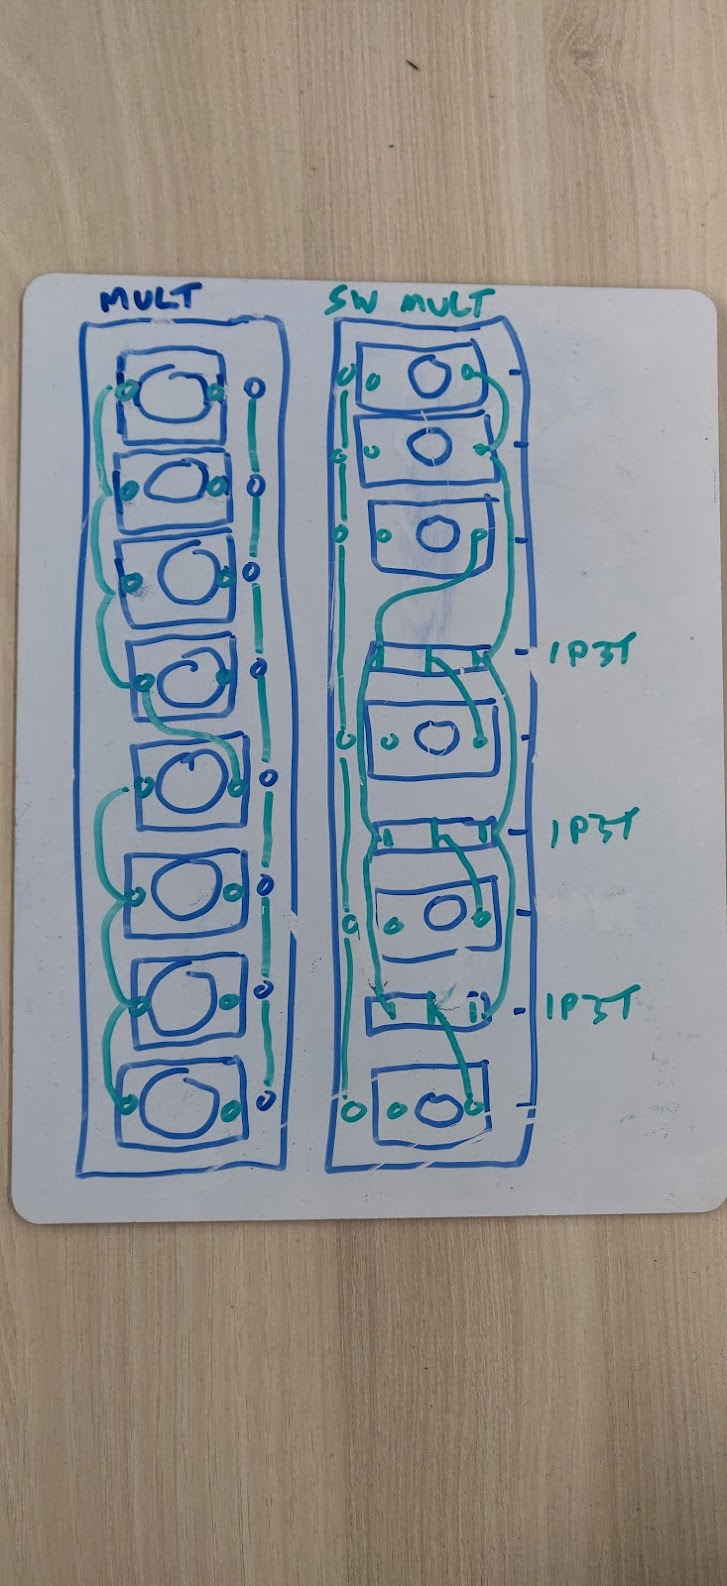 MULT
SW MULT
1P3T
1P3T
1P3T